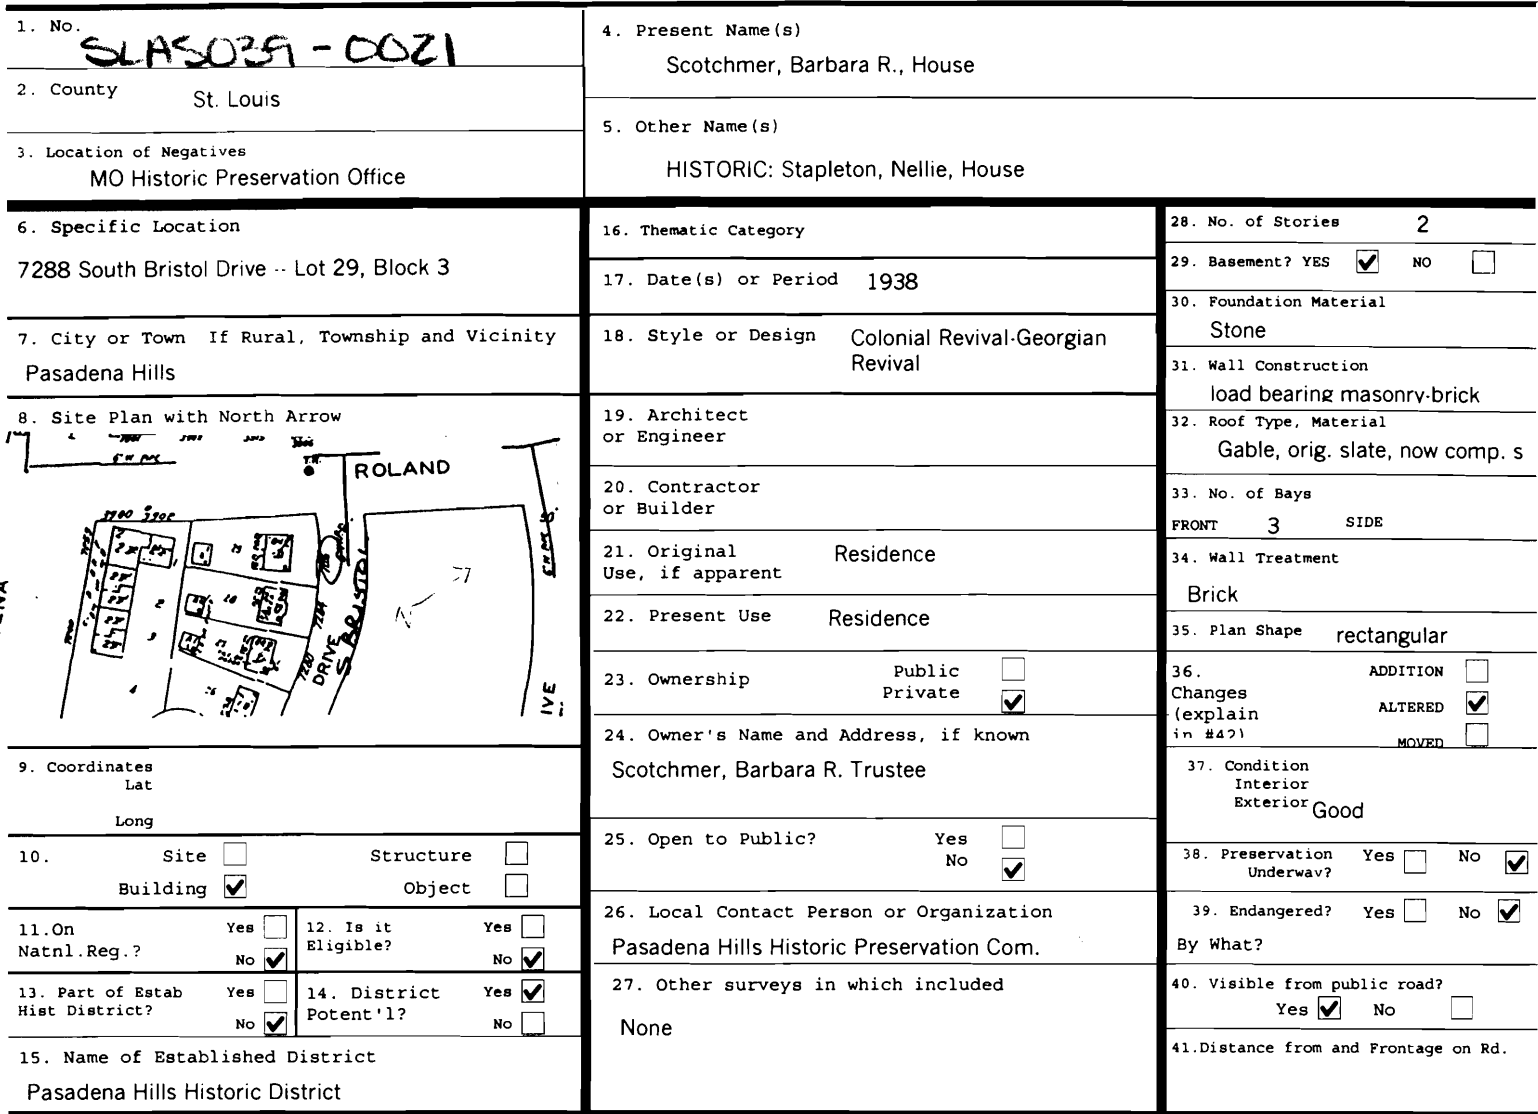 1. No.
SLAS039-0021
2. County
St. Louis
3. Location of Negatives
MO Historic Preservation Office
4. Present Name(s)
Scotchmer, Barbara R., House
5. Other Name(s)
HISTORIC: Stapleton, Nellie, House
6. Specific Location
7288 South Bristol Drive -- Lot 29, Block 3
7. City or Town If Rural, Township and Vicinity
Pasadena Hills
8. Site Plan with North Arrow
ROLAND
3900 3908
S BRISTOL
DRIVE
7284
7280
IVE
9. Coordinates
Lat
Long
10. Site Structure
Building Object
11.On Yes
Natnl.Reg.? No
12. Is it Yes
Eligible? No
13. Part of Estab Yes
Hist District? No
14. District Yes
Potent'l? No
15. Name of Established District
Pasadena Hills Historic District
16. Thematic Category
17. Date(s) or Period 1938
18. Style or Design Colonial Revival-Georgian
Revival
19. Architect
or Engineer
20. Contractor
or Builder
21. Original Residence
Use, if apparent
22. Present Use Residence
23. Ownership Public
Private
24. Owner's Name and Address, if known
Scotchmer, Barbara R. Trustee
25. Open to Public? Yes
No
26. Local Contact Person or Organization
Pasadena Hills Historic Preservation Com.
27. Other surveys in which included
None
28. No. of Stories 2
29. Basement? YES NO
30. Foundation Material
Stone
31. Wall Construction
load bearing masonry-brick
32. Roof Type, Material
Gable, orig. slate, now comp. s
33. No. of Bays
FRONT 3 SIDE
34. Wall Treatment
Brick
35. Plan Shape rectangular
36. ADDITION
Changes ALTERED
(explain
in #42) MOVED
37. Condition
Interior
Exterior Good
38. Preservation Yes No
Underway?
39. Endangered? Yes No
By What?
40. Visible from public road?
Yes No
41.Distance from and Frontage on Rd.